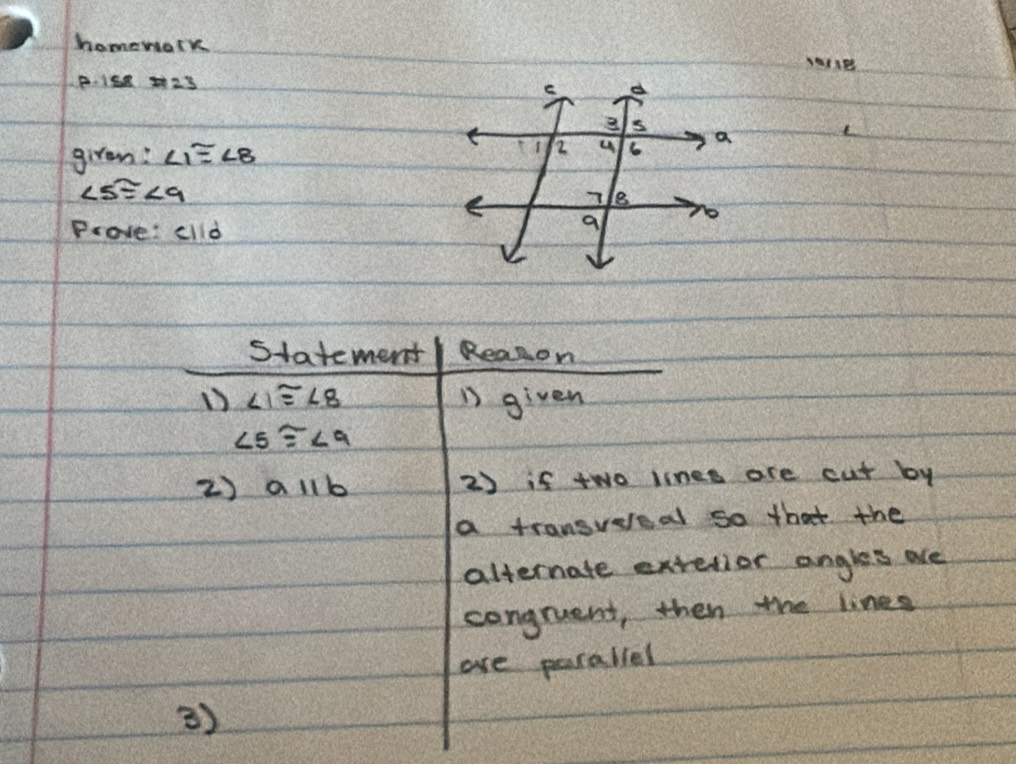 homework
p.158 #23
given: ∠1≅∠8
∠5≅∠9
Prove: c||d
c d
3 5
a
1 2 4 6
7 8
b
9
Statement Reason
1) ∠1≅∠8 1) given
∠5≅∠9
2) a||b 2) if two lines are cut by
a transversal so that the
alternate exterior angles are
congruent, then the lines
are parallel
3)